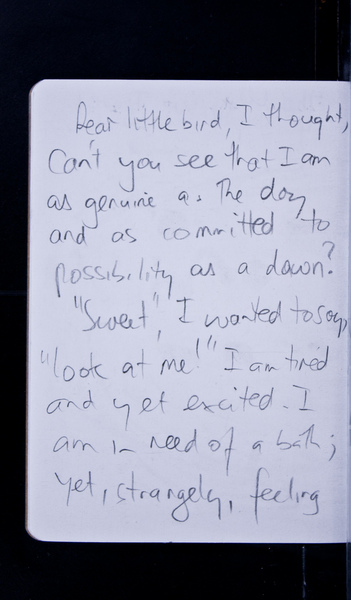 Dear little bird, I thought,
Can't you see that I am
as genuine as the day
and as committed to
possibility as a dawn?
"Sweet", I wanted to say,
"look at me!" I am tired
and yet excited. I
am in need of a bath;
yet, strangely, feeling